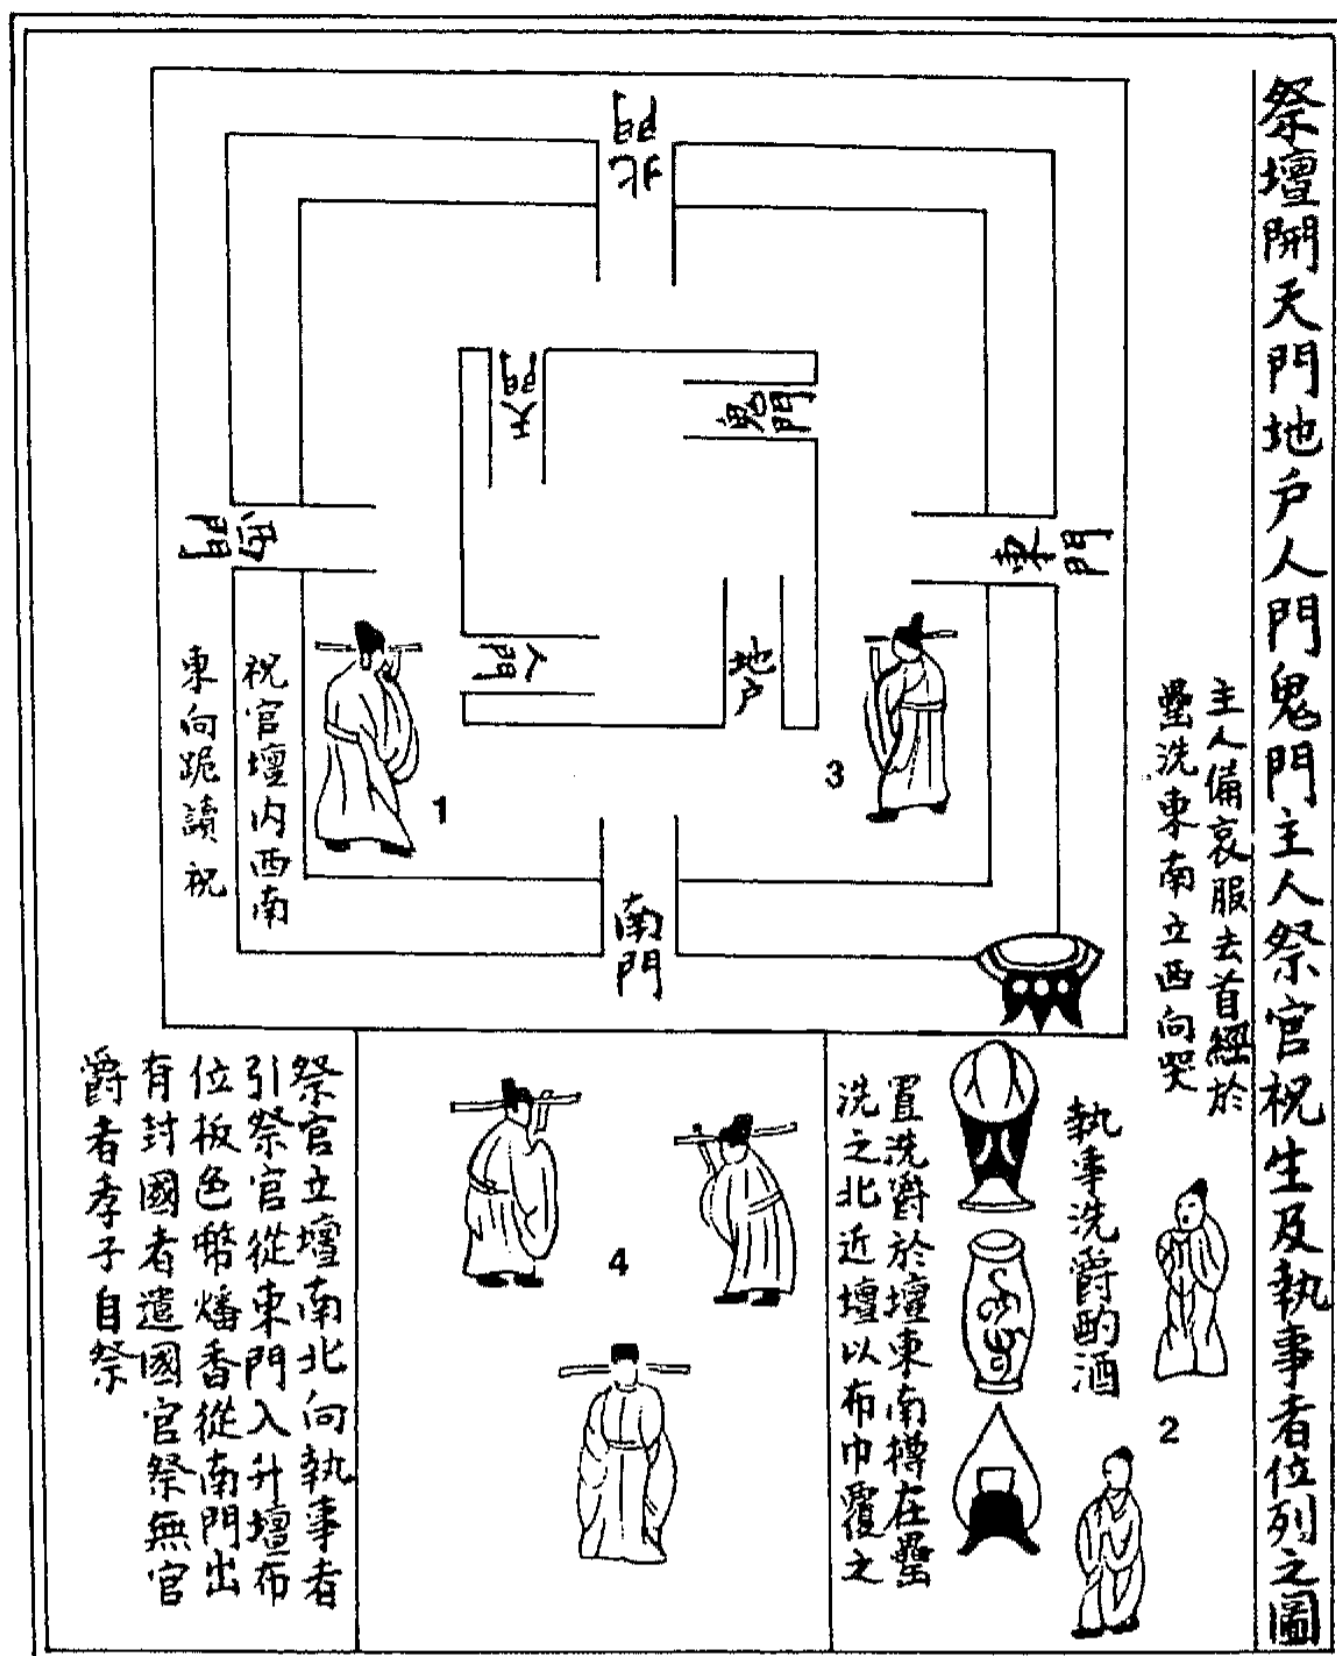 祭壇開天門地户人門鬼門主人祭官祝生及執事者位列之圖
主人備哀服去首經於
罍洗東南立西向哭
北門
東門
西門
南門
天門
鬼門
地户
人門
祝官壇内西南
東向跪讀祝
1
3
執事洗爵酌酒
2
置洗爵於壇東南樽在罍
洗之北近壇以布巾覆之
4
祭官立壇南北向執事者
引祭官從東門入升壇布
位板色幣燔香從南門出
有封國者遣國官祭無官
爵者孝子自祭